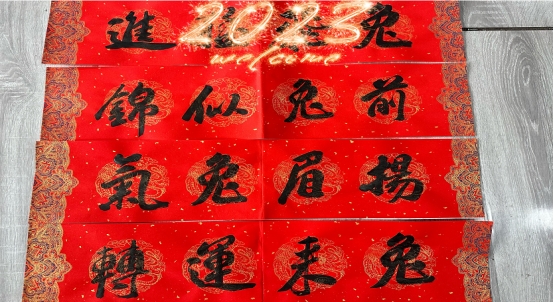 2023
welcome
兔進
前兔似錦
揚眉兔氣
兔来運轉